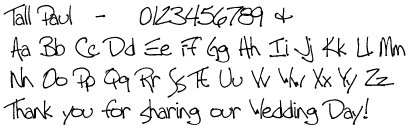 Tall Paul - 0123456789 &
Aa Bb Cc Dd Ee Ff Gg Hh Ii Jj Kk Ll Mm
Nn Oo Pp Qq Rr Ss Tt Uu Vv Ww Xx Yy Zz
Thank you for sharing our Wedding Day!